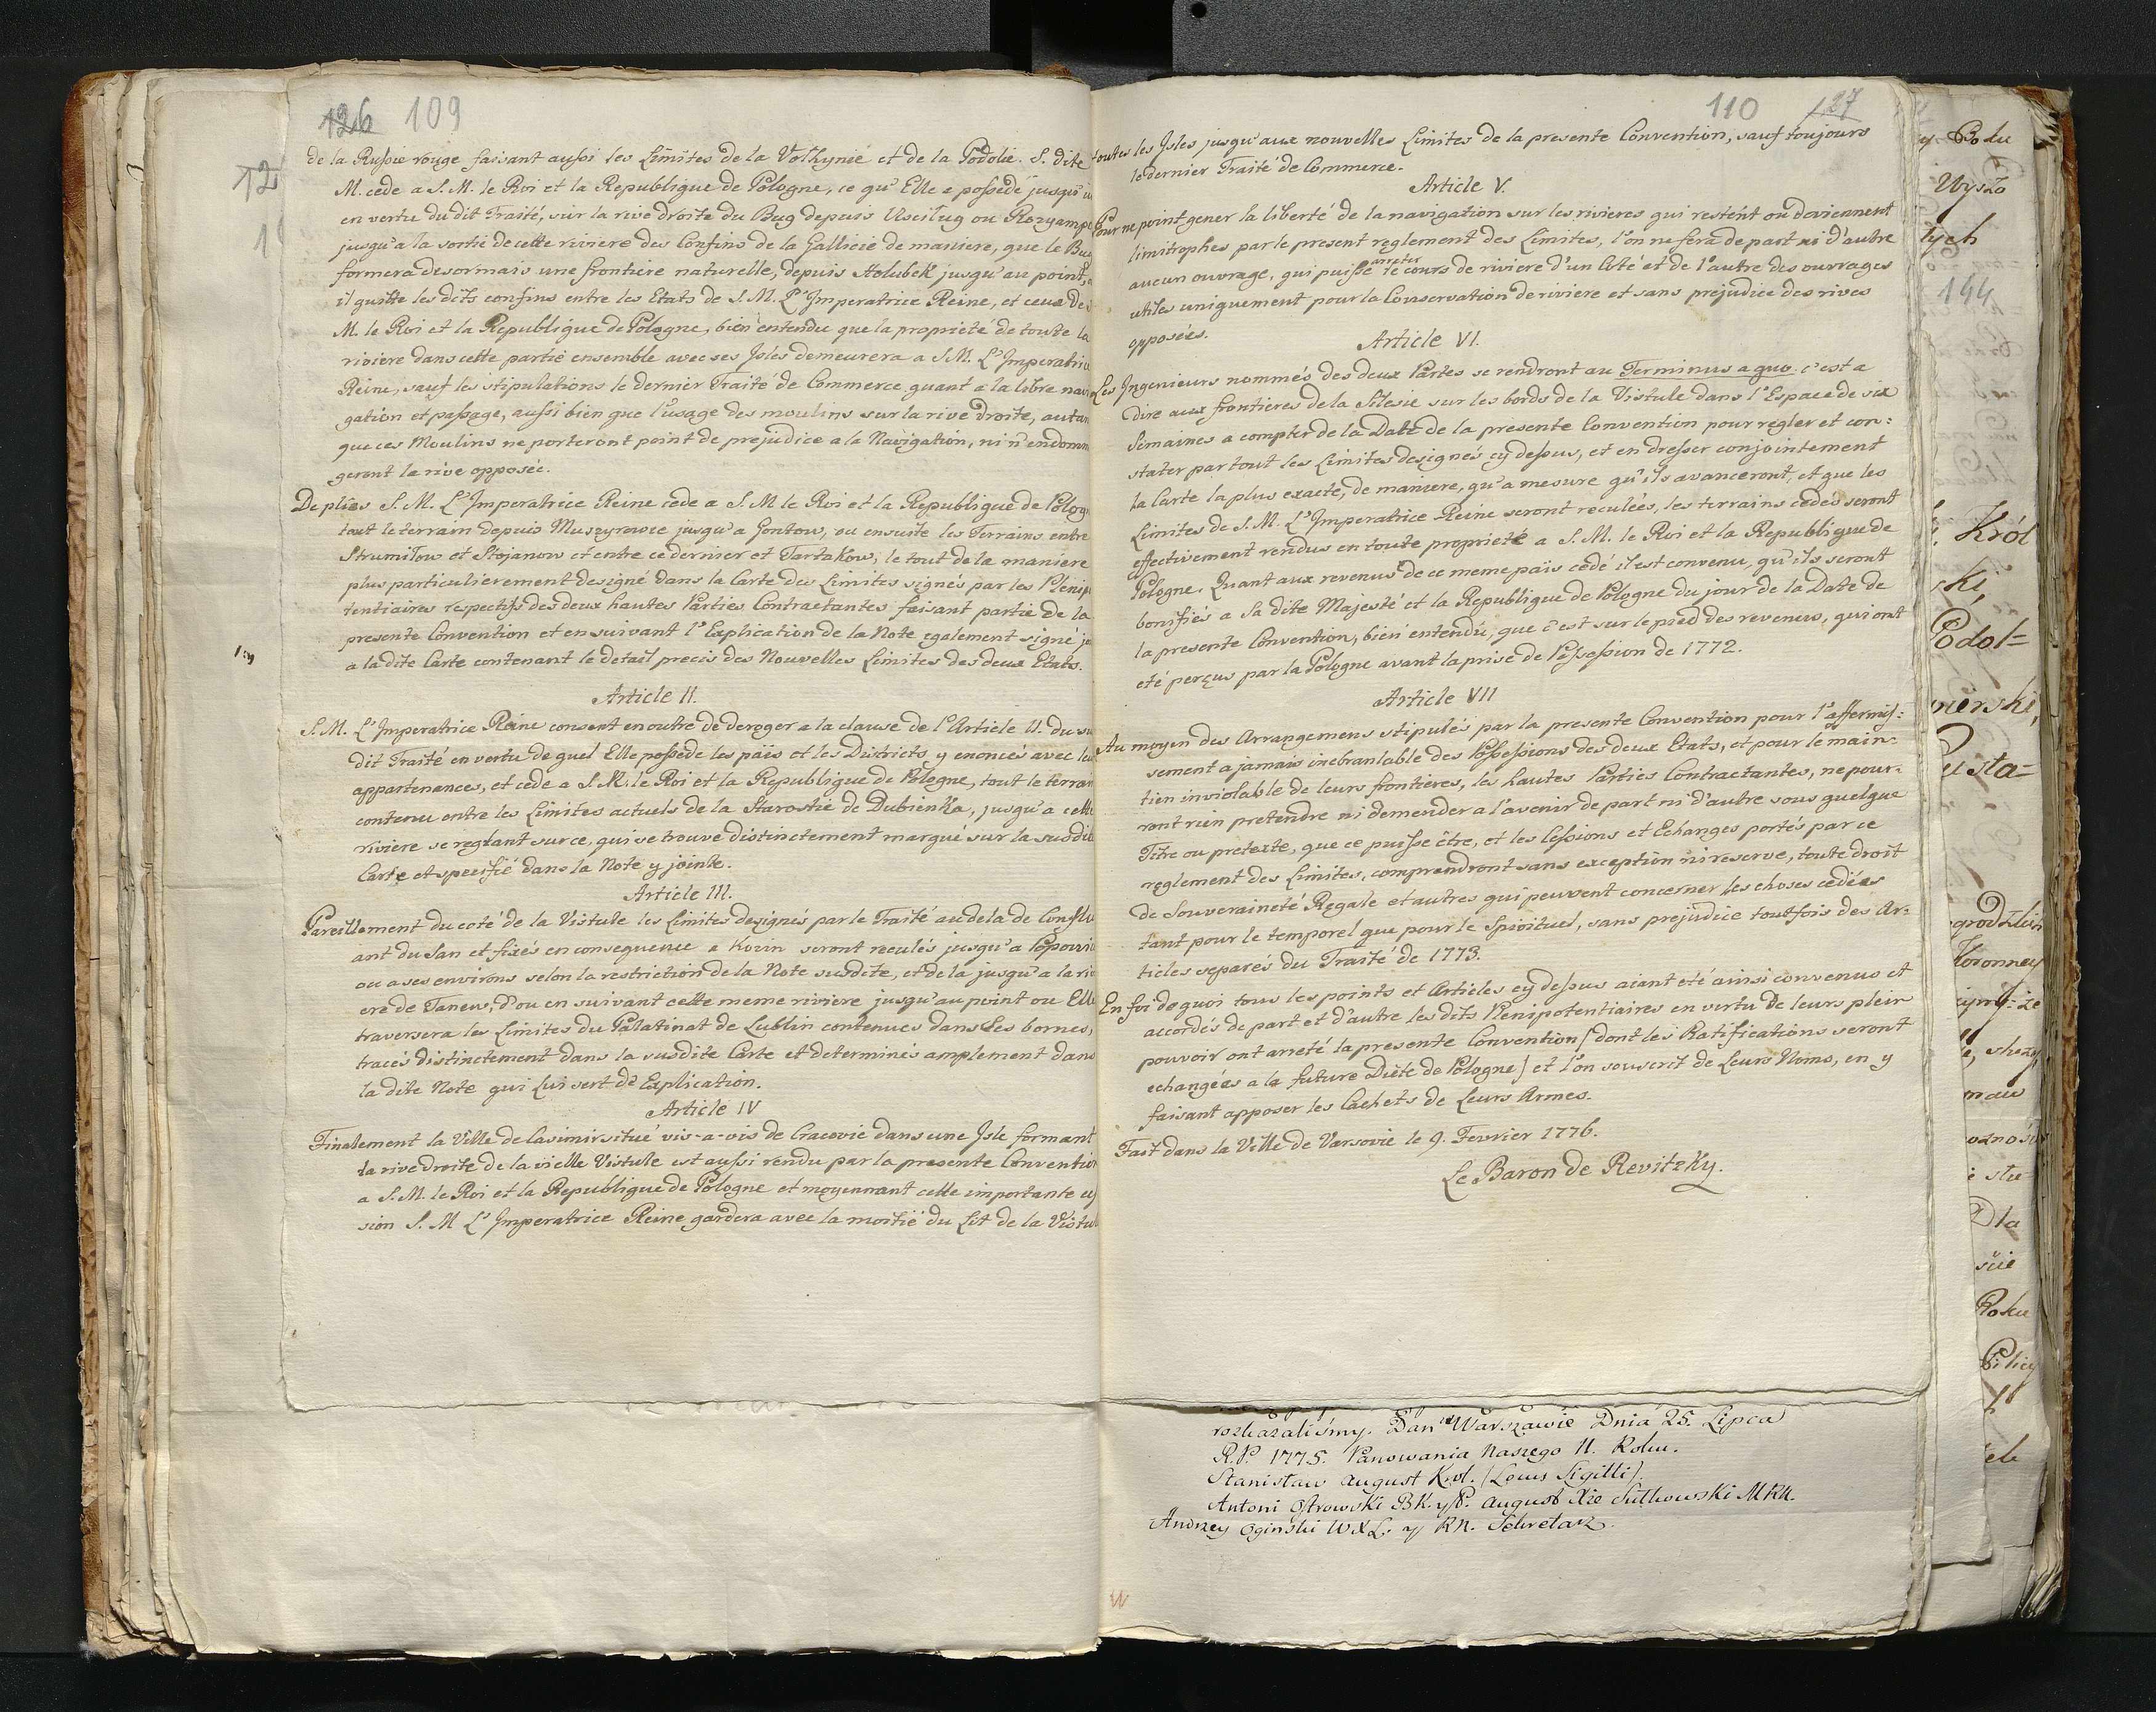 126 109
de la Russie rouge faisant aussi les Limites de la Volhynie et de la Podolie. S. dite
M. cede a S. M. le Roi et la Republique de Pologne, ce qu'Elle a possedé jusqu'
en vertu du dit Traité, sur la rive droite du Bug depuis Uscilug ou Rozyamp
jusqu'a la sortie de cette riviere des Confins de la Gallicie de maniere, que le Bug
formera desormais une frontiere naturelle, depuis Holubek jusqu'au point,
il quitte les dits confins entre les Etats de S. M. L'Imperatrice Reine, et ceux de
M. le Roi et la Republique de Pologne, bien entendu que la propriete de toute la
riviere dans cette partie ensemble avec ses Isles demeurera a S. M. L'Imperatric
Reine, sauf les stipulations le dernier Traité de Commerce, quant a la libre navi
gation et passage, aussi bien que l'usage des moulins sur la rive droite, autan
que ces Moulins ne porteront point de prejudice a la Navigation, ni n'endomm
geront la rive opposée.
De plus S. M. L'Imperatrice Reine cede a S. M le Roi et la Republique de Polog
tout le terrain depuis Muszyrowce jusqu'a Gontow, ou ensuite les Terrains entre
Strumilow et Stojanow et entre ce dernier et Tartakow, le tout de la maniere
plus particulierement designé dans la Carte des Limites signés par les Plenip
tentiaires respectifs des deux hautes Parties Contractantes faisant partie de la
presente Convention et en suivant l'Explication de la Note egalement signé
a la dite Carte contenant le detail precis des Nouvelles Limites des deux Etats.
Article II.
S. M. L'Imperatrice Reine consent en outre de deroger a la clause de l'Article II. du su
dit Traité en vertu de quel Elle possede les païs et les Districts y enoncés avec leu
appartenances, et cede a S. M. le Roi et la Republique de Pologne, tout le terrain
contenu entre les Limites actuels de la Starostie de Dubienka, jusqu'a cette
riviere se reglant sur ce, qui se trouve distinctement marqué sur la susdite
Carte et specifié dans la Note y jointe.
Article III.
Pareillement du coté de la Vistule les Limites designés par le Traité au dela de Conflu
ant du San et fixés en consequence a Kozin seront reculés jusqu'a Popowi
ou a ses environs selon la restriction de la Note susdite, et de là jusqu'a la rivi
ere de Tanew, d'ou en suivant cette meme riviere jusqu'au point ou Elle
traversera les Limites du Palatinat de Lublin contenues dans Ses bornes,
tracés distinctement dans la susdite Carte et determinés amplement dans
la dite Note qui Lui sert d'Explication.
Article IV
Finalement la Ville de Casimir situé vis-a-vis de Cracovie dans une Isle formant
la rive droite de la vielle Vistule est aussi rendu par la presente Convention
a S. M. le Roi et la Republique de Pologne et moyennant cette importante ces
sion S. M L'Imperatrice Reine gardera avec la moitié du Lit de la Vistul
110 127
toutes les Isles jusqu'aux nouvelles Limites de la presente Convention, sauf toujours
le dernier Traité de Commerce.
Article V.
Pour ne point gener la liberté de la navigation sur les rivieres qui restent ou deviennent
limitrophes par le present reglement des Limites, l'on ne fera de part ni d'autre
aucun ouvrage, qui puisse arreter le cours de riviere d'un Coté et de l'autre des ouvrages
utiles uniquement pour la Conservation de riviere et sans prejudice des rives
opposées.
Article VI.
Les Ingenieurs nommés des deux Partes se rendront au Terminus a quo, c'est a
dire aux frontieres de la Silesie sur les bords de la Vistule dans l'Espace de six
Semaines a compter de la Date de la presente Convention pour regler et con:
stater par tout les Limites designés cy dessus, et en dresser conjointement
la Carte la plus exacte, de maniere, qu'a mesure qu'ils avanceront, et que les
Limites de S. M. L'Imperatrice Reine seront reculées, les terrains cedés seront
effectivement rendus en toute proprieté a S. M. le Roi et la Republique de
Pologne. Quant aux revenus de ce meme païs cedé il est convenu, qu'ils seront
bonifiés a Sa dite Majesté et la Republique de Pologne du jour de la Date de
la presente Convention, bien entendu, que c'est sur le pied des revenus, qui ont
eté perçus par la Pologne avant la prise de Possession de 1772.
Article VII
Au moyen des Arrangemens stipulés par la presente Convention pour l'affermis:
sement a jamais inebranlable des Possessions des deux Etats, et pour le main:
tien inviolable de leurs frontieres, les hautes Parties Contractantes, ne pour:
ront rien pretendre ni demender a l'avenir de part ni d'autre sous quelque
Titre ou pretexte, que ce puisse être, et les Cessions et Echanges portés par ce
reglement des Limites, comprendront sans exception ni reserve, toute droit
de Souveraineté Regale et autres qui peuvent concerner les choses cedées
tant pour le temporel que pour le Spirituel, sans prejudice toutfois des Ar:
ticles separés du Traité de 1773.
En foi de quoi tous les points et Articles cy dessus aiant eté ainsi convenus et
accordés de part et d'autre les dits Plenipotentiaires en vertu de leurs plein
pouvoir ont arreté la presente Convention (dont les Ratifications seront
echangées a la future Diéte de Pologne) et l'on souscrit de Leurs Noms, en y
faisant apposer les Cachets de Leurs Armes.
Fait dans la Ville de Varsovie le 9. Fevrier 1776.
Le Baron de Revitzky.
rozkazaliśmy. Dan w Warszawie Dnia 25. Lipca
R.P. 1775. Panowania Naszego 11. Roku.
Stanisław August Krol. (Locus Sigilli).
Antoni Ostrowski BK. yP. August Xże Sułkowski MRN.
Andrzey Oginski WXL. y RN. Sekretarz.
y Roku
Wyszo
tych
194
Król
ski,
Podol=
nierski,
usta=
grodzkich
Koronney
mau
i stu
Dla
Roku